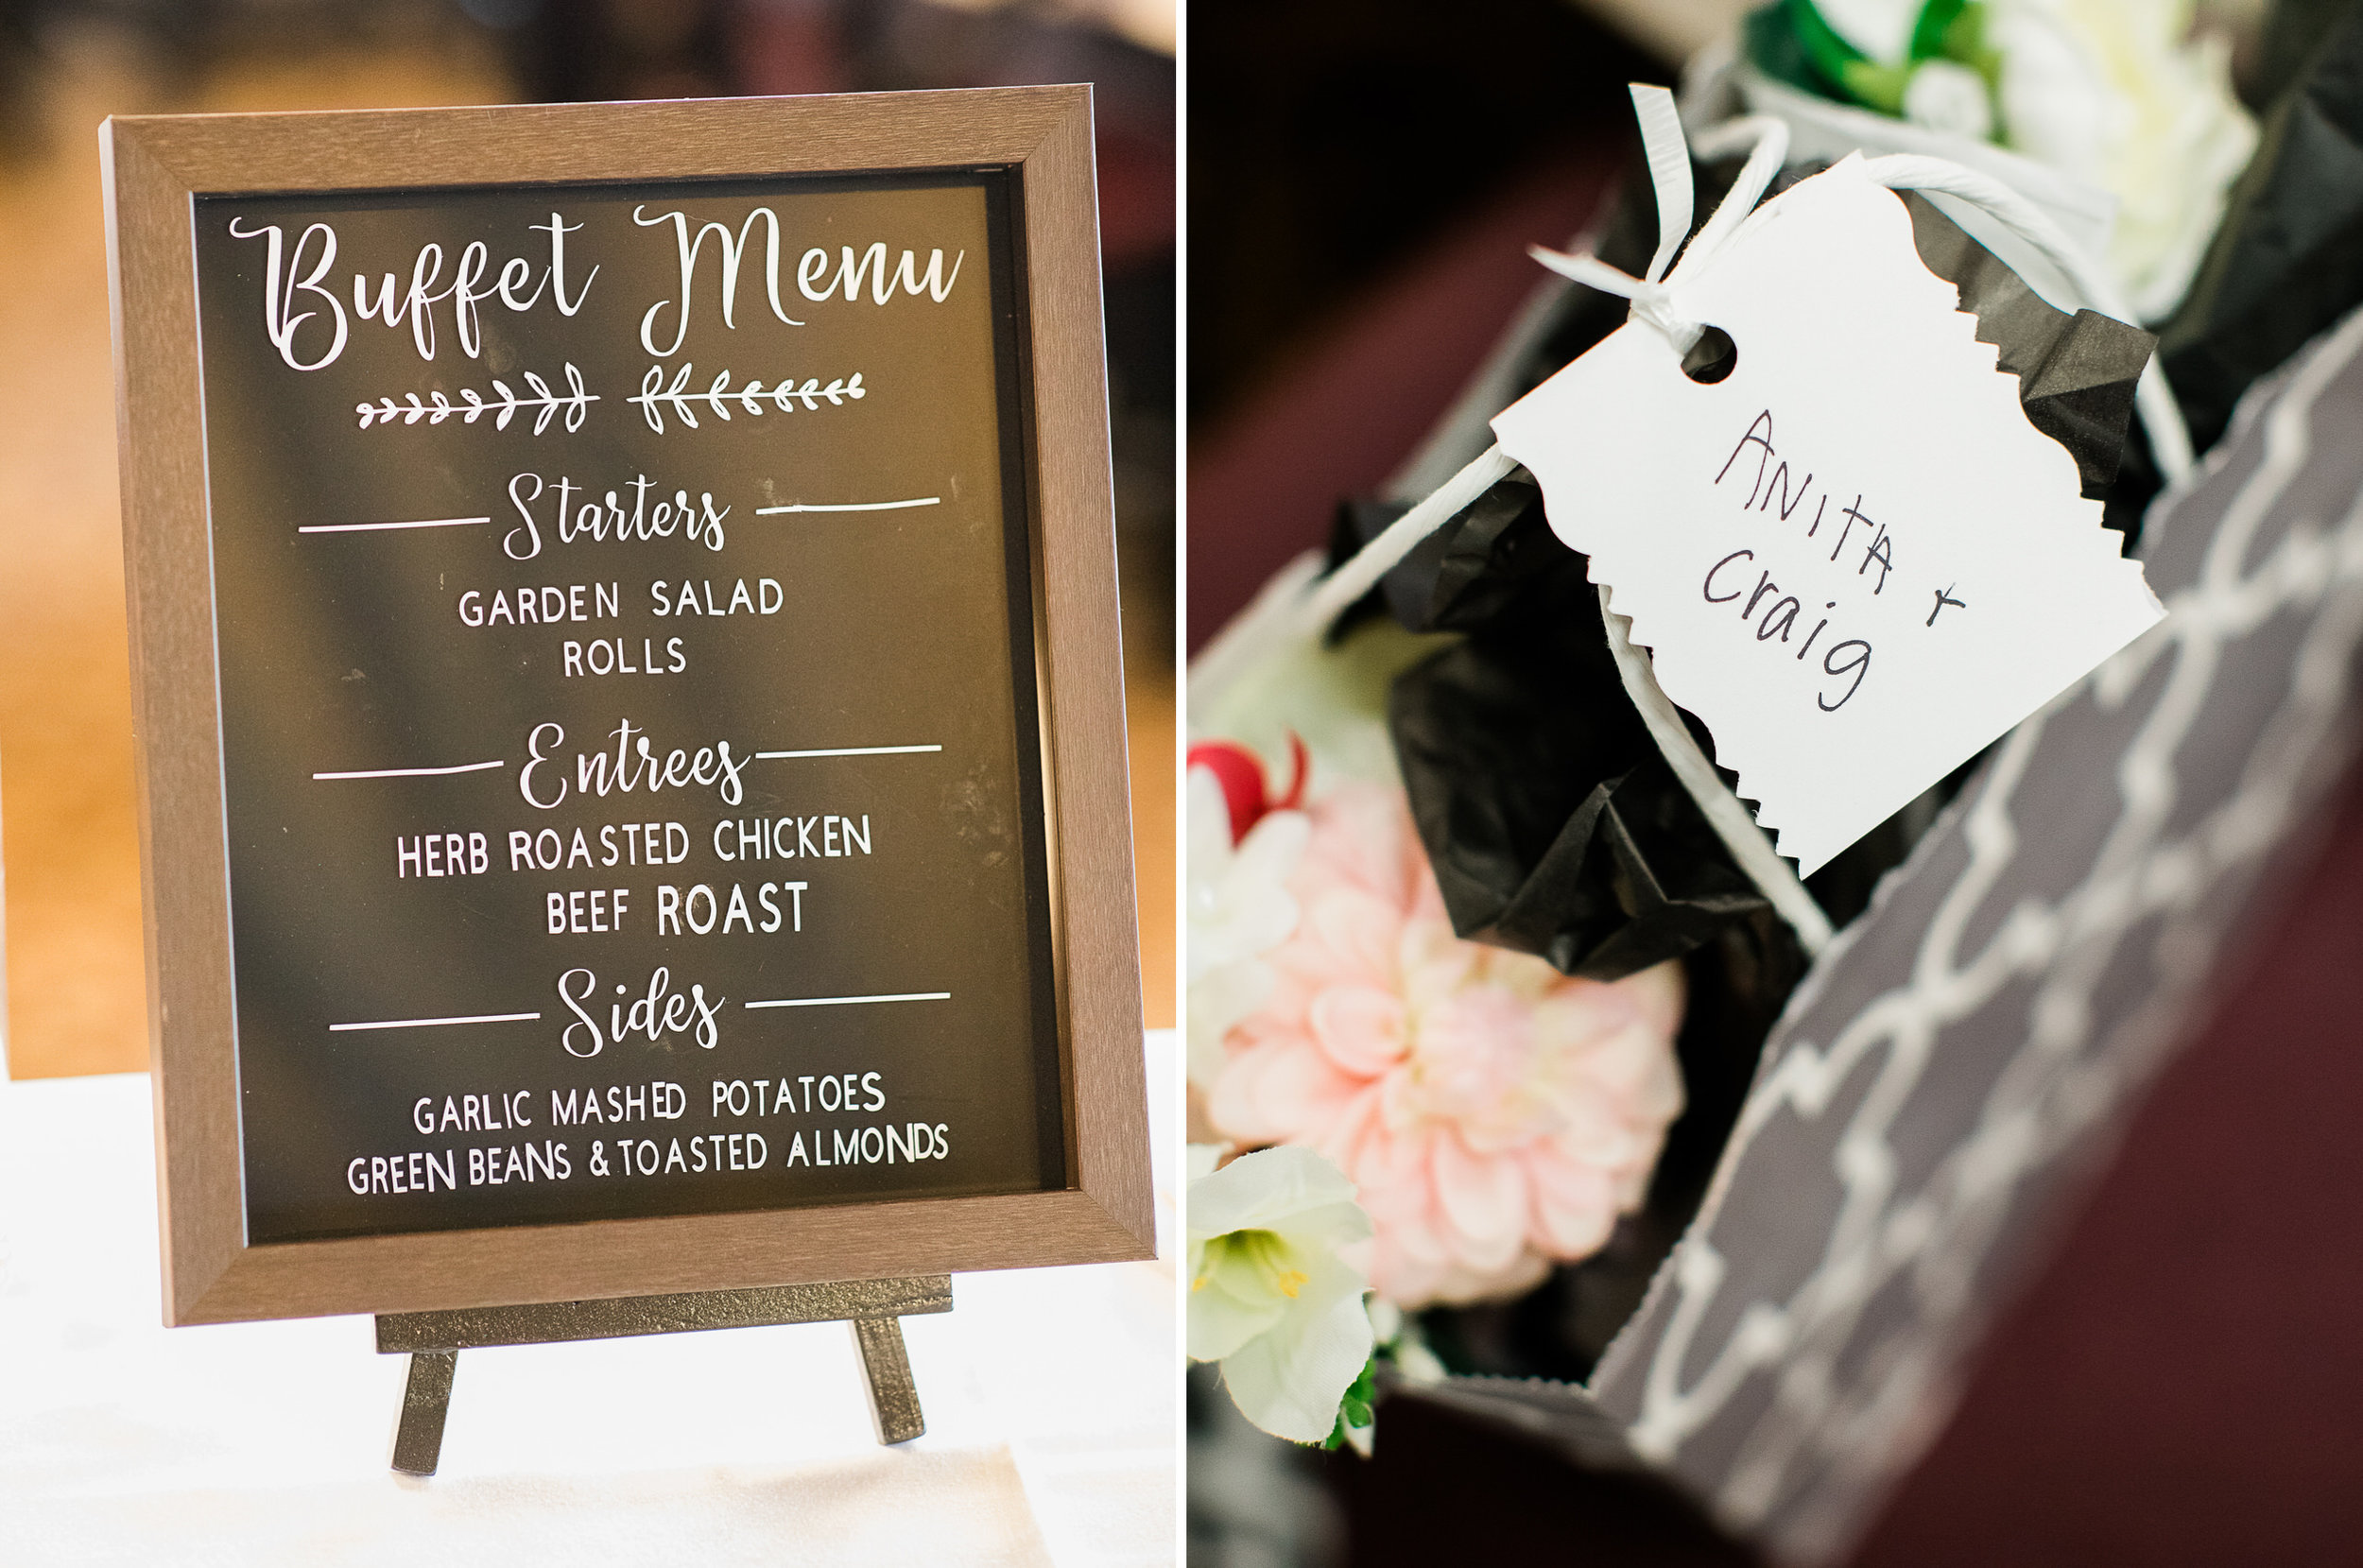 Buffet Menu
Starters
GARDEN SALAD
ROLLS
Entrees
HERB ROASTED CHICKEN
BEEF ROAST
Sides
GARLIC MASHED POTATOES
GREEN BEANS & TOASTED ALMONDS
ANITA +
Craig